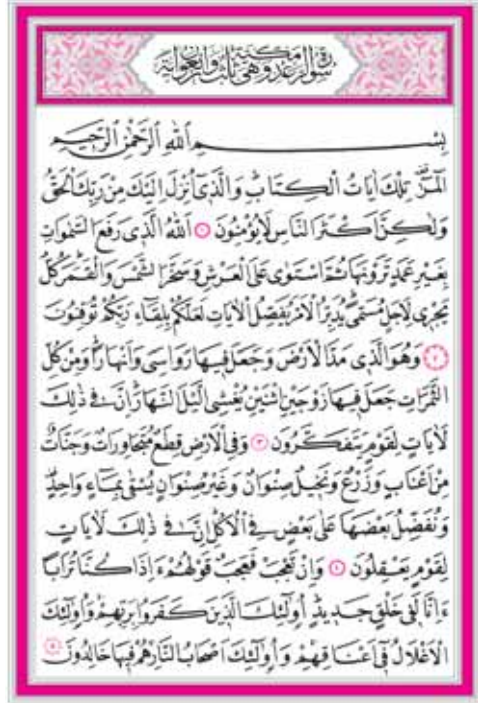 سورة الرعد مكية وهي ثلث واربعون اية
بِسْمِ اللّٰهِ الرَّحْمٰنِ الرَّحٖيمِ
الٓمٓرٰ تِلْكَ اٰيَاتُ الْكِتَابِ وَالَّذٖٓي اُنْزِلَ اِلَيْكَ مِنْ رَبِّكَ الْحَقُّ
وَلٰكِنَّ اَكْثَرَ النَّاسِ لَا يُؤْمِنُونَ ١ اَللّٰهُ الَّذٖي رَفَعَ السَّمٰوَاتِ
بِغَيْرِ عَمَدٍ تَرَوْنَهَا ثُمَّ اسْتَوٰى عَلَى الْعَرْشِ وَسَخَّرَ الشَّمْسَ وَالْقَمَرَ كُلٌّ
يَجْرٖي لِاَجَلٍ مُسَمًّى يُدَبِّرُ الْاَمْرَ يُفَصِّلُ الْاٰيَاتِ لَعَلَّكُمْ بِلِقَٓاءِ رَبِّكُمْ تُوقِنُونَ
٢ وَهُوَ الَّذٖي مَدَّ الْاَرْضَ وَجَعَلَ فٖيهَا رَوَاسِيَ وَاَنْهَارًا وَمِنْ كُلِّ
الثَّمَرَاتِ جَعَلَ فٖيهَا زَوْجَيْنِ اثْنَيْنِ يُغْشِي الَّيْلَ النَّهَارَ اِنَّ فٖي ذٰلِكَ
لَاٰيَاتٍ لِقَوْمٍ يَتَفَكَّرُونَ ٣ وَفِي الْاَرْضِ قِطَعٌ مُتَجَاوِرَاتٌ وَجَنَّاتٌ
مِنْ اَعْنَابٍ وَزَرْعٌ وَنَخٖيلٌ صِنْوَانٌ وَغَيْرُ صِنْوَانٍ يُسْقٰى بِمَٓاءٍ وَاحِدٍ
وَنُفَضِّلُ بَعْضَهَا عَلٰى بَعْضٍ فِي الْاُكُلِ اِنَّ فٖي ذٰلِكَ لَاٰيَاتٍ
لِقَوْمٍ يَعْقِلُونَ ٤ وَاِنْ تَعْجَبْ فَعَجَبٌ قَوْلُهُمْ ءَاِذَا كُنَّا تُرَابًا
ءَاِنَّا لَفٖي خَلْقٍ جَدٖيدٍ اُولٰٓئِكَ الَّذٖينَ كَفَرُوا بِرَبِّهِمْ وَاُولٰٓئِكَ
الْاَغْلَالُ فٖٓي اَعْنَاقِهِمْ وَاُولٰٓئِكَ اَصْحَابُ النَّارِ هُمْ فٖيهَا خَالِدُونَ ٥